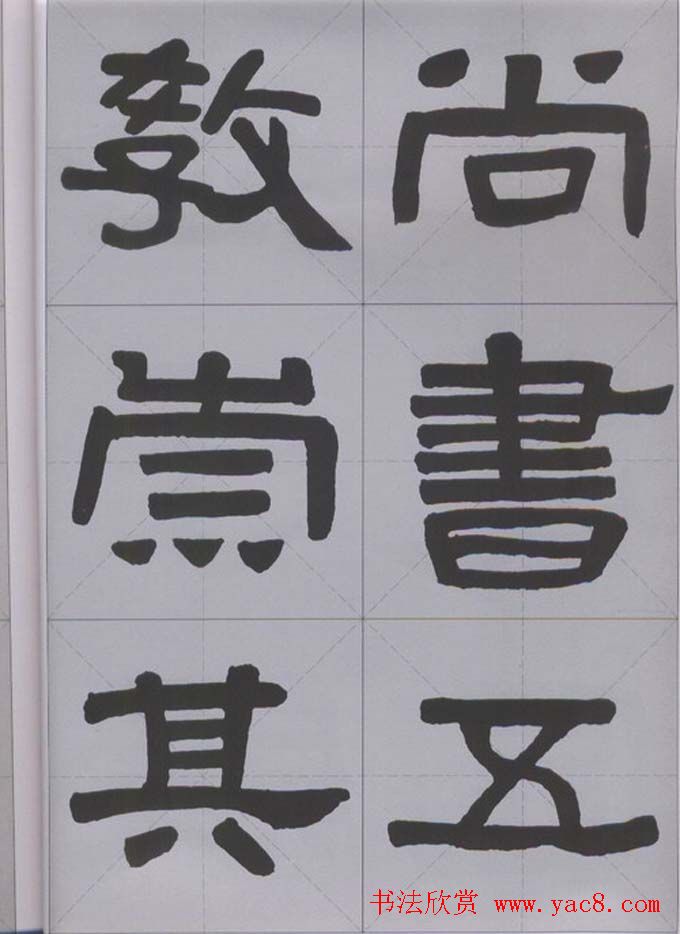 尚書五
教崇其
书法欣赏 www.yac8.com